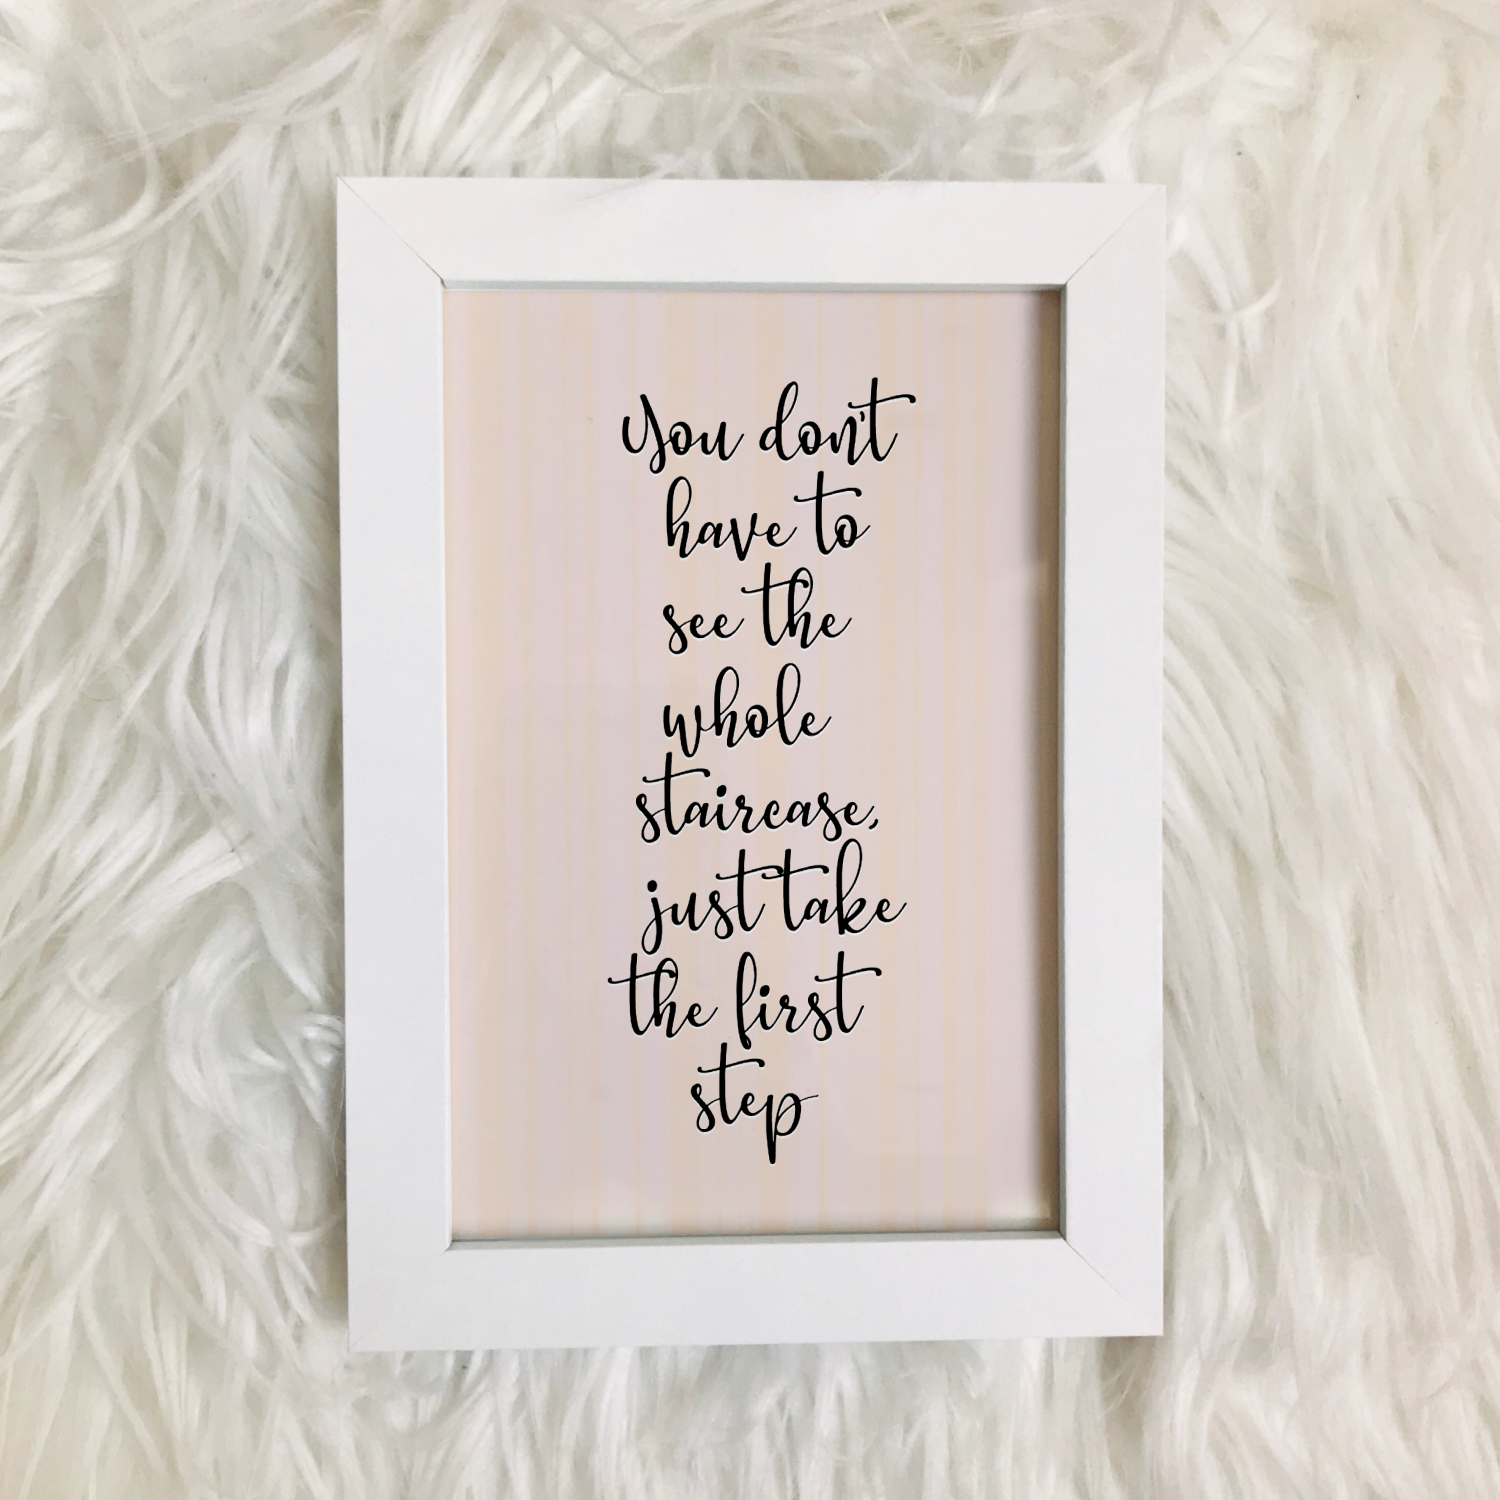 You don't
have to
see the
whole
staircase,
just take
the first
step